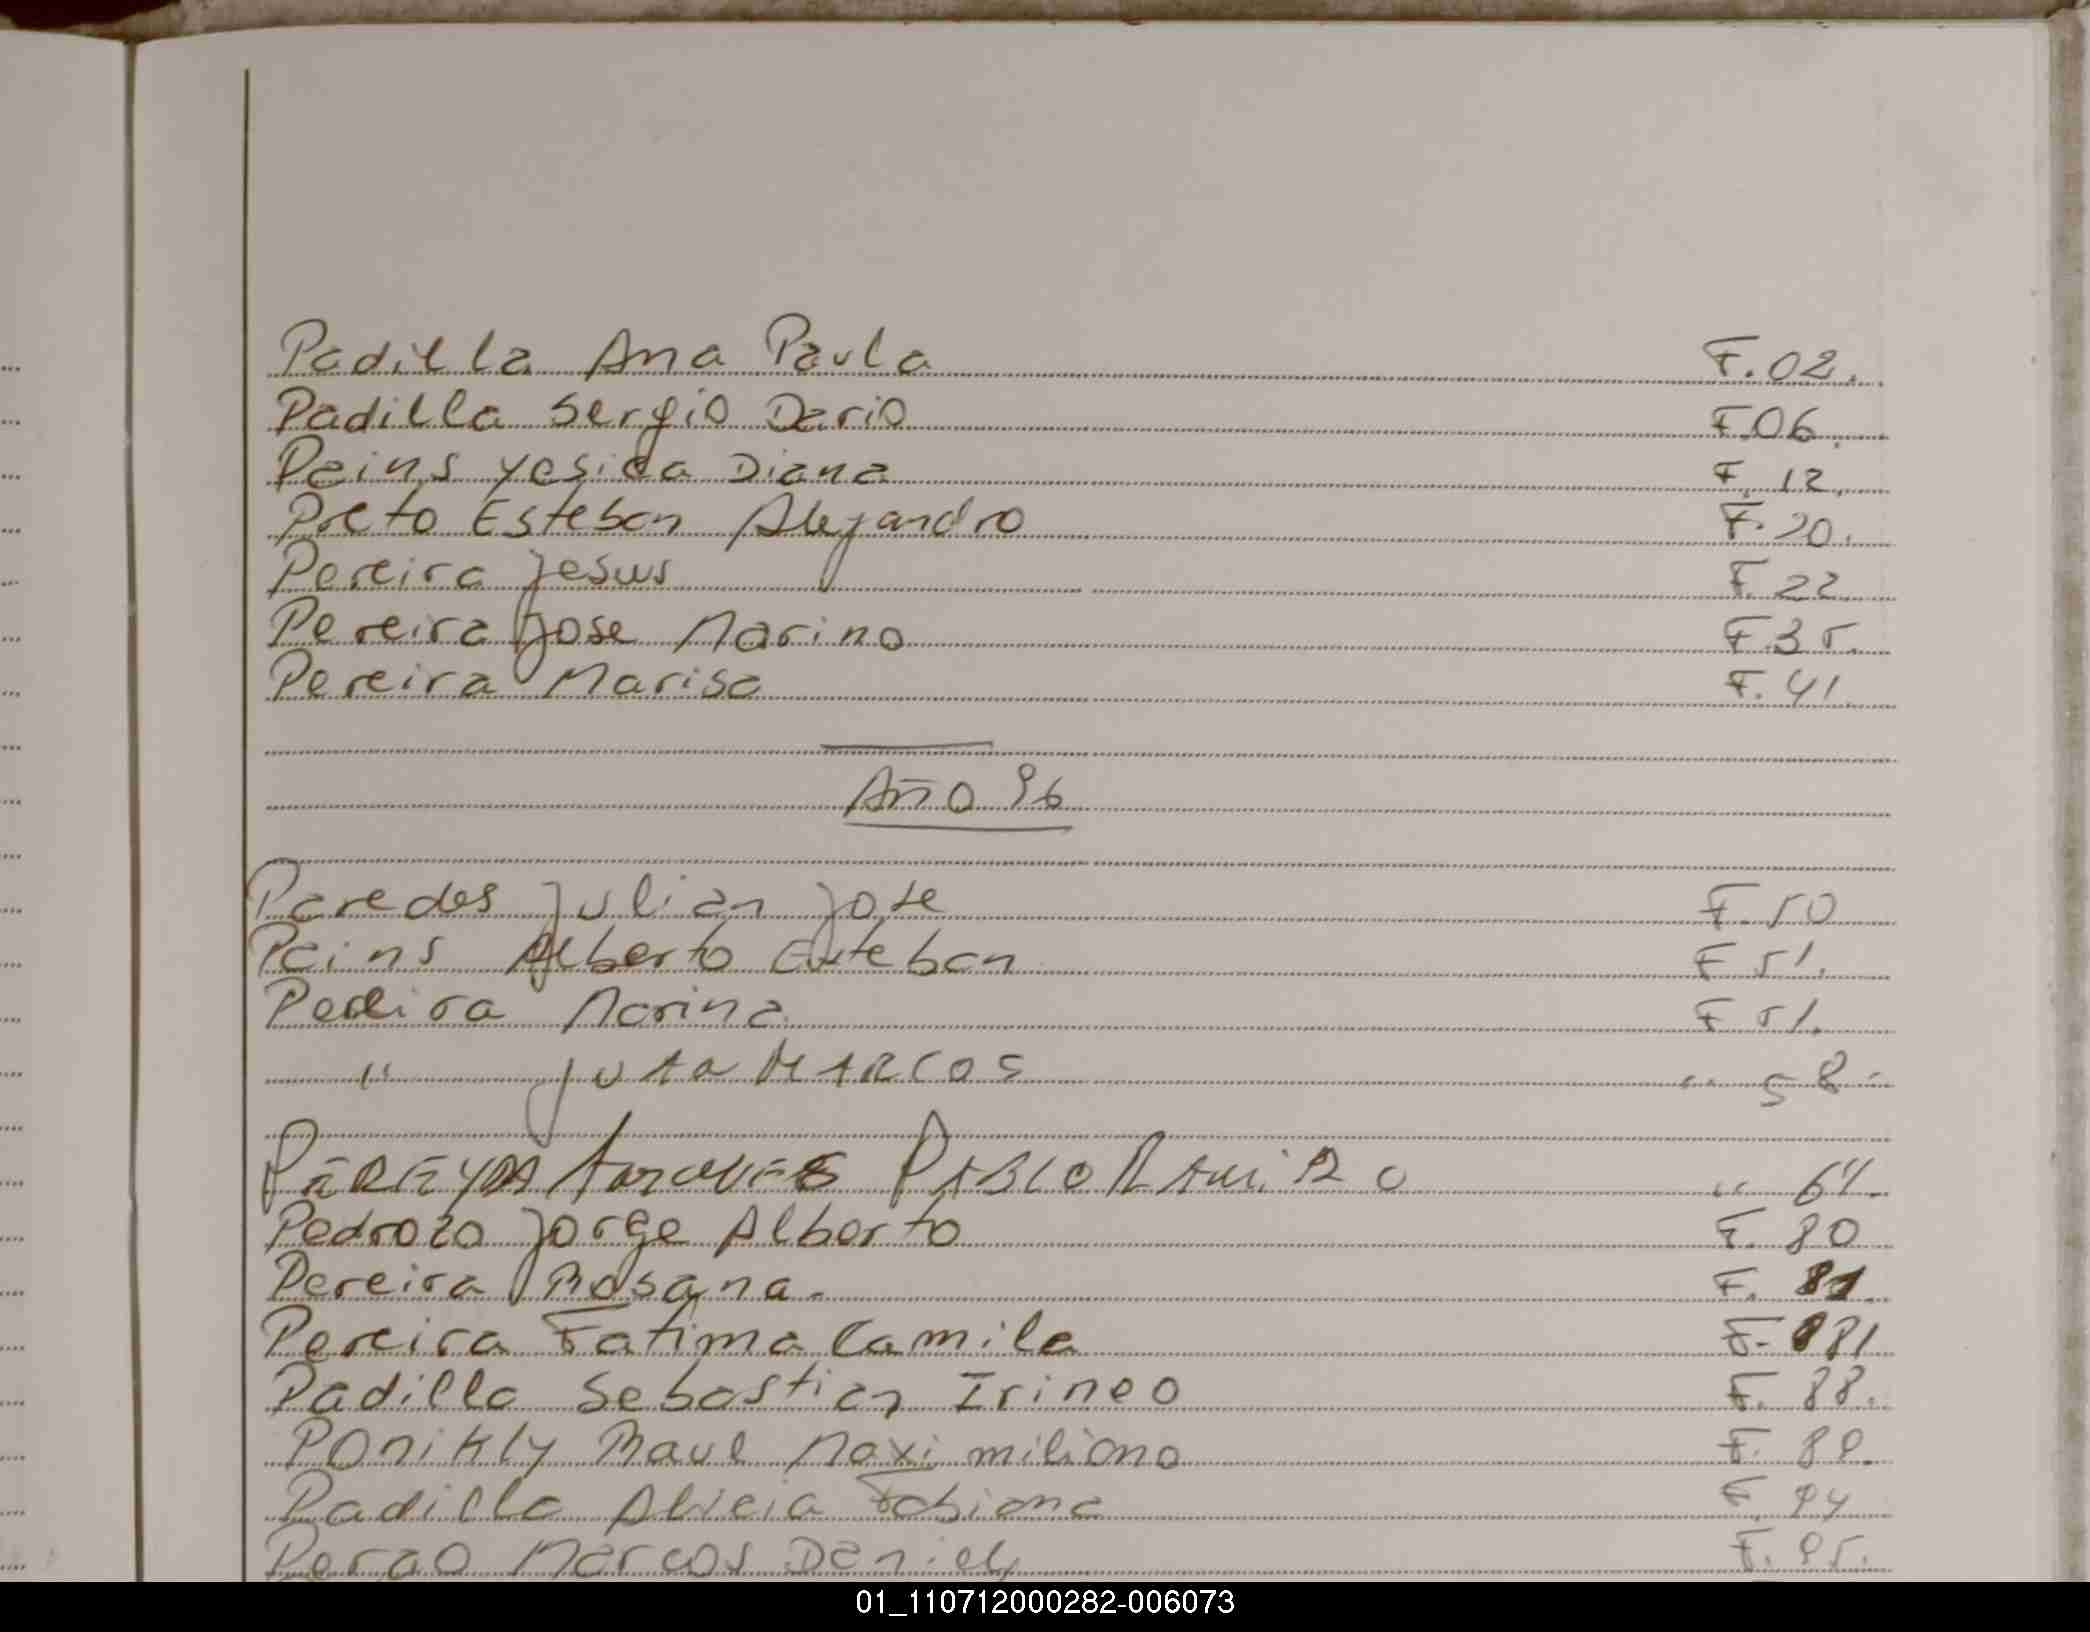 Padilla Ana Paula F.02.
Padilla Sergio Dario F.06.
Peins Yesica Diana F. 12.
Preto Esteban Alejandro F. 20.
Pereira Jesus F. 22
Pereira Jose Marino F.35.
Pereira Marisa F. 41.
Año 96
Paredes Julian Jose F. 50
Peins Alberto Esteban F 51.
Pereira Marina F 51.
" MARCOS " 58-
PEREYRA PABLO RAMIRO " 61.
Pedrozo Jorge Alberto F. 80
Pereira Rosana. F. 81.
Pereira Fatima Camila F. 81
Padilla Sebastian Irineo F. 88.
Ponikly Raul Maximiliano F. 89.
Padilla Alicia Fabiana F. 94
Marcos Daniel F. 95.
01_110712000282-006073